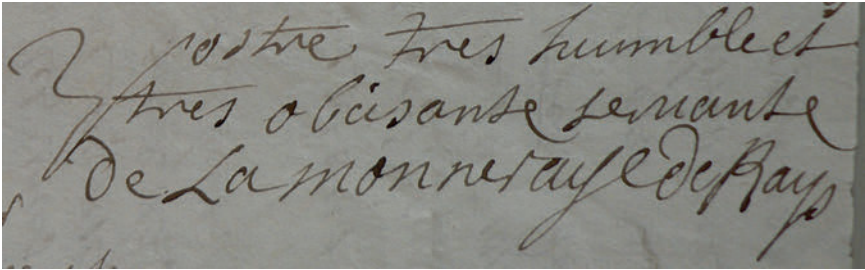 Vostre tres huumble et
tres obeisante seruante
de La monneraye de Rays